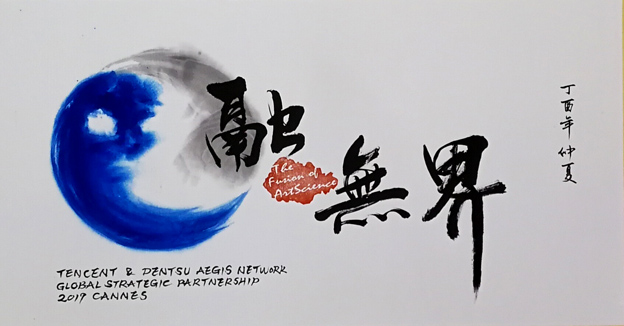 融無界
The
Fusion of
ArtScience
丁酉年仲夏
TENCENT & DENTSU AEGIS NETWORK
GLOBAL STRATEGIC PARTNERSHIP
2017 CANNES